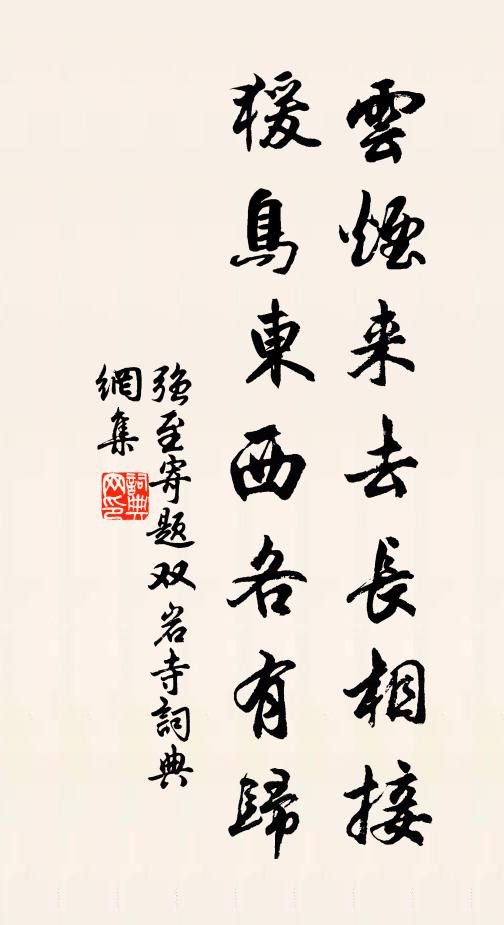 雲煙来去長相接
猨鳥東西各有歸
强至寄題双岩寺詞典
網集
詞典網印